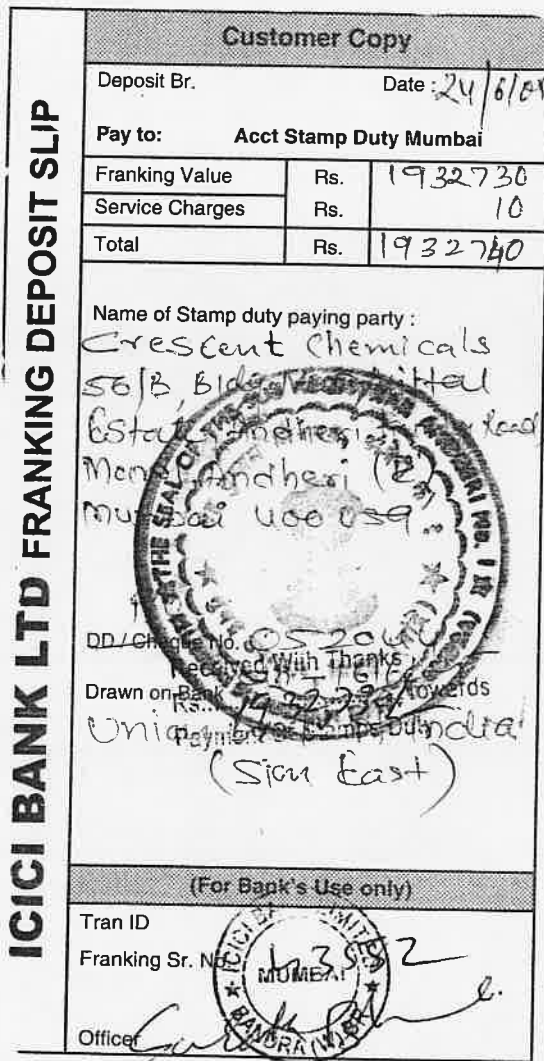 ICICI BANK LTD FRANKING DEPOSIT SLIP
Customer Copy
Deposit Br. Date : 24/6/0
Pay to: Acct Stamp Duty Mumbai
Franking Value Rs. 1932730
Service Charges Rs. 10
Total Rs. 1932740
Name of Stamp duty paying party :
Crescent Chemicals
56/B, Bldg Mittal
Estate, Andheri Road
Andheri (E)
Mumbai 400 059
DD / Cheque No. 0520
Received With Thanks
Drawn on Bank Rs. Towards
Union India
Payment Stamps Duty
(Sion East)
THE SEAL OF THE ANDHERI NO. 1
(For Bank's Use only)
Tran ID
Franking Sr. No.
ICICI BANK LIMITED
MUMBAI
BANDRA (W) BR.
Officer